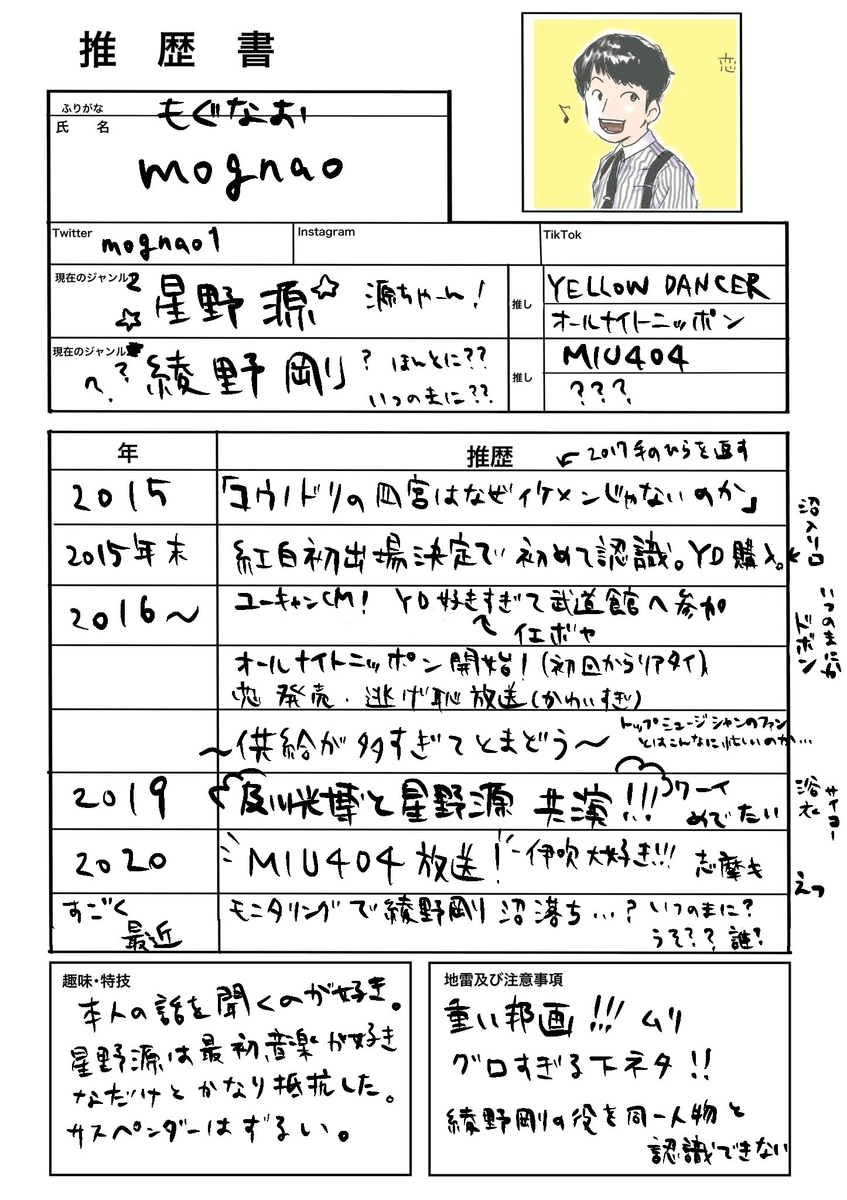 推歴書
恋
ふりがな
もぐなお
氏 名
mognao
Twitter
mognao1
Instagram
TikTok
現在のジャンル2
星野源
源ちゃーん!
推し
YELLOW DANCER
オールナイトニッポン
現在のジャンル
へ?
綾野剛
? ほんとに??
いつのまに??
推し
MIU404
???
年
推歴
←2017手のひらを返す
2015
「コウノドリの四宮はなぜイケメンじゃないのか」
沼入り口
2015年末
紅白初出場決定で初めて認識。YD購入。
2016〜
ユーキャンCM! YD好きすぎて武道館へ参加
イエボヤ
いつのまにか
ドボン
オールナイトニッポン開始!(初回からリアタイ)
恋発売・逃げ恥放送(かわいすぎ)
〜供給が多すぎてとまどう〜
トップミュージシャンのファン
とはこんなに忙しいのか…
2019
及川光博と星野源 共演!!!
ワーイ
めでたい
浴衣
サイコー
2020
MIU404放送!
伊吹大好き!!!
志摩も
えっ
すごく
最近
モニタリングで綾野剛沼落ち…?
いつのまに?
うそ??誰!
趣味・特技
本人の話を聞くのが好き。
星野源は最初音楽が好き
なだけとかなり抵抗した。
サスペンダーはずるい。
地雷及び注意事項
重い邦画!!!ムリ
グロすぎる下ネタ!!
綾野剛の役を同一人物と
認識できない